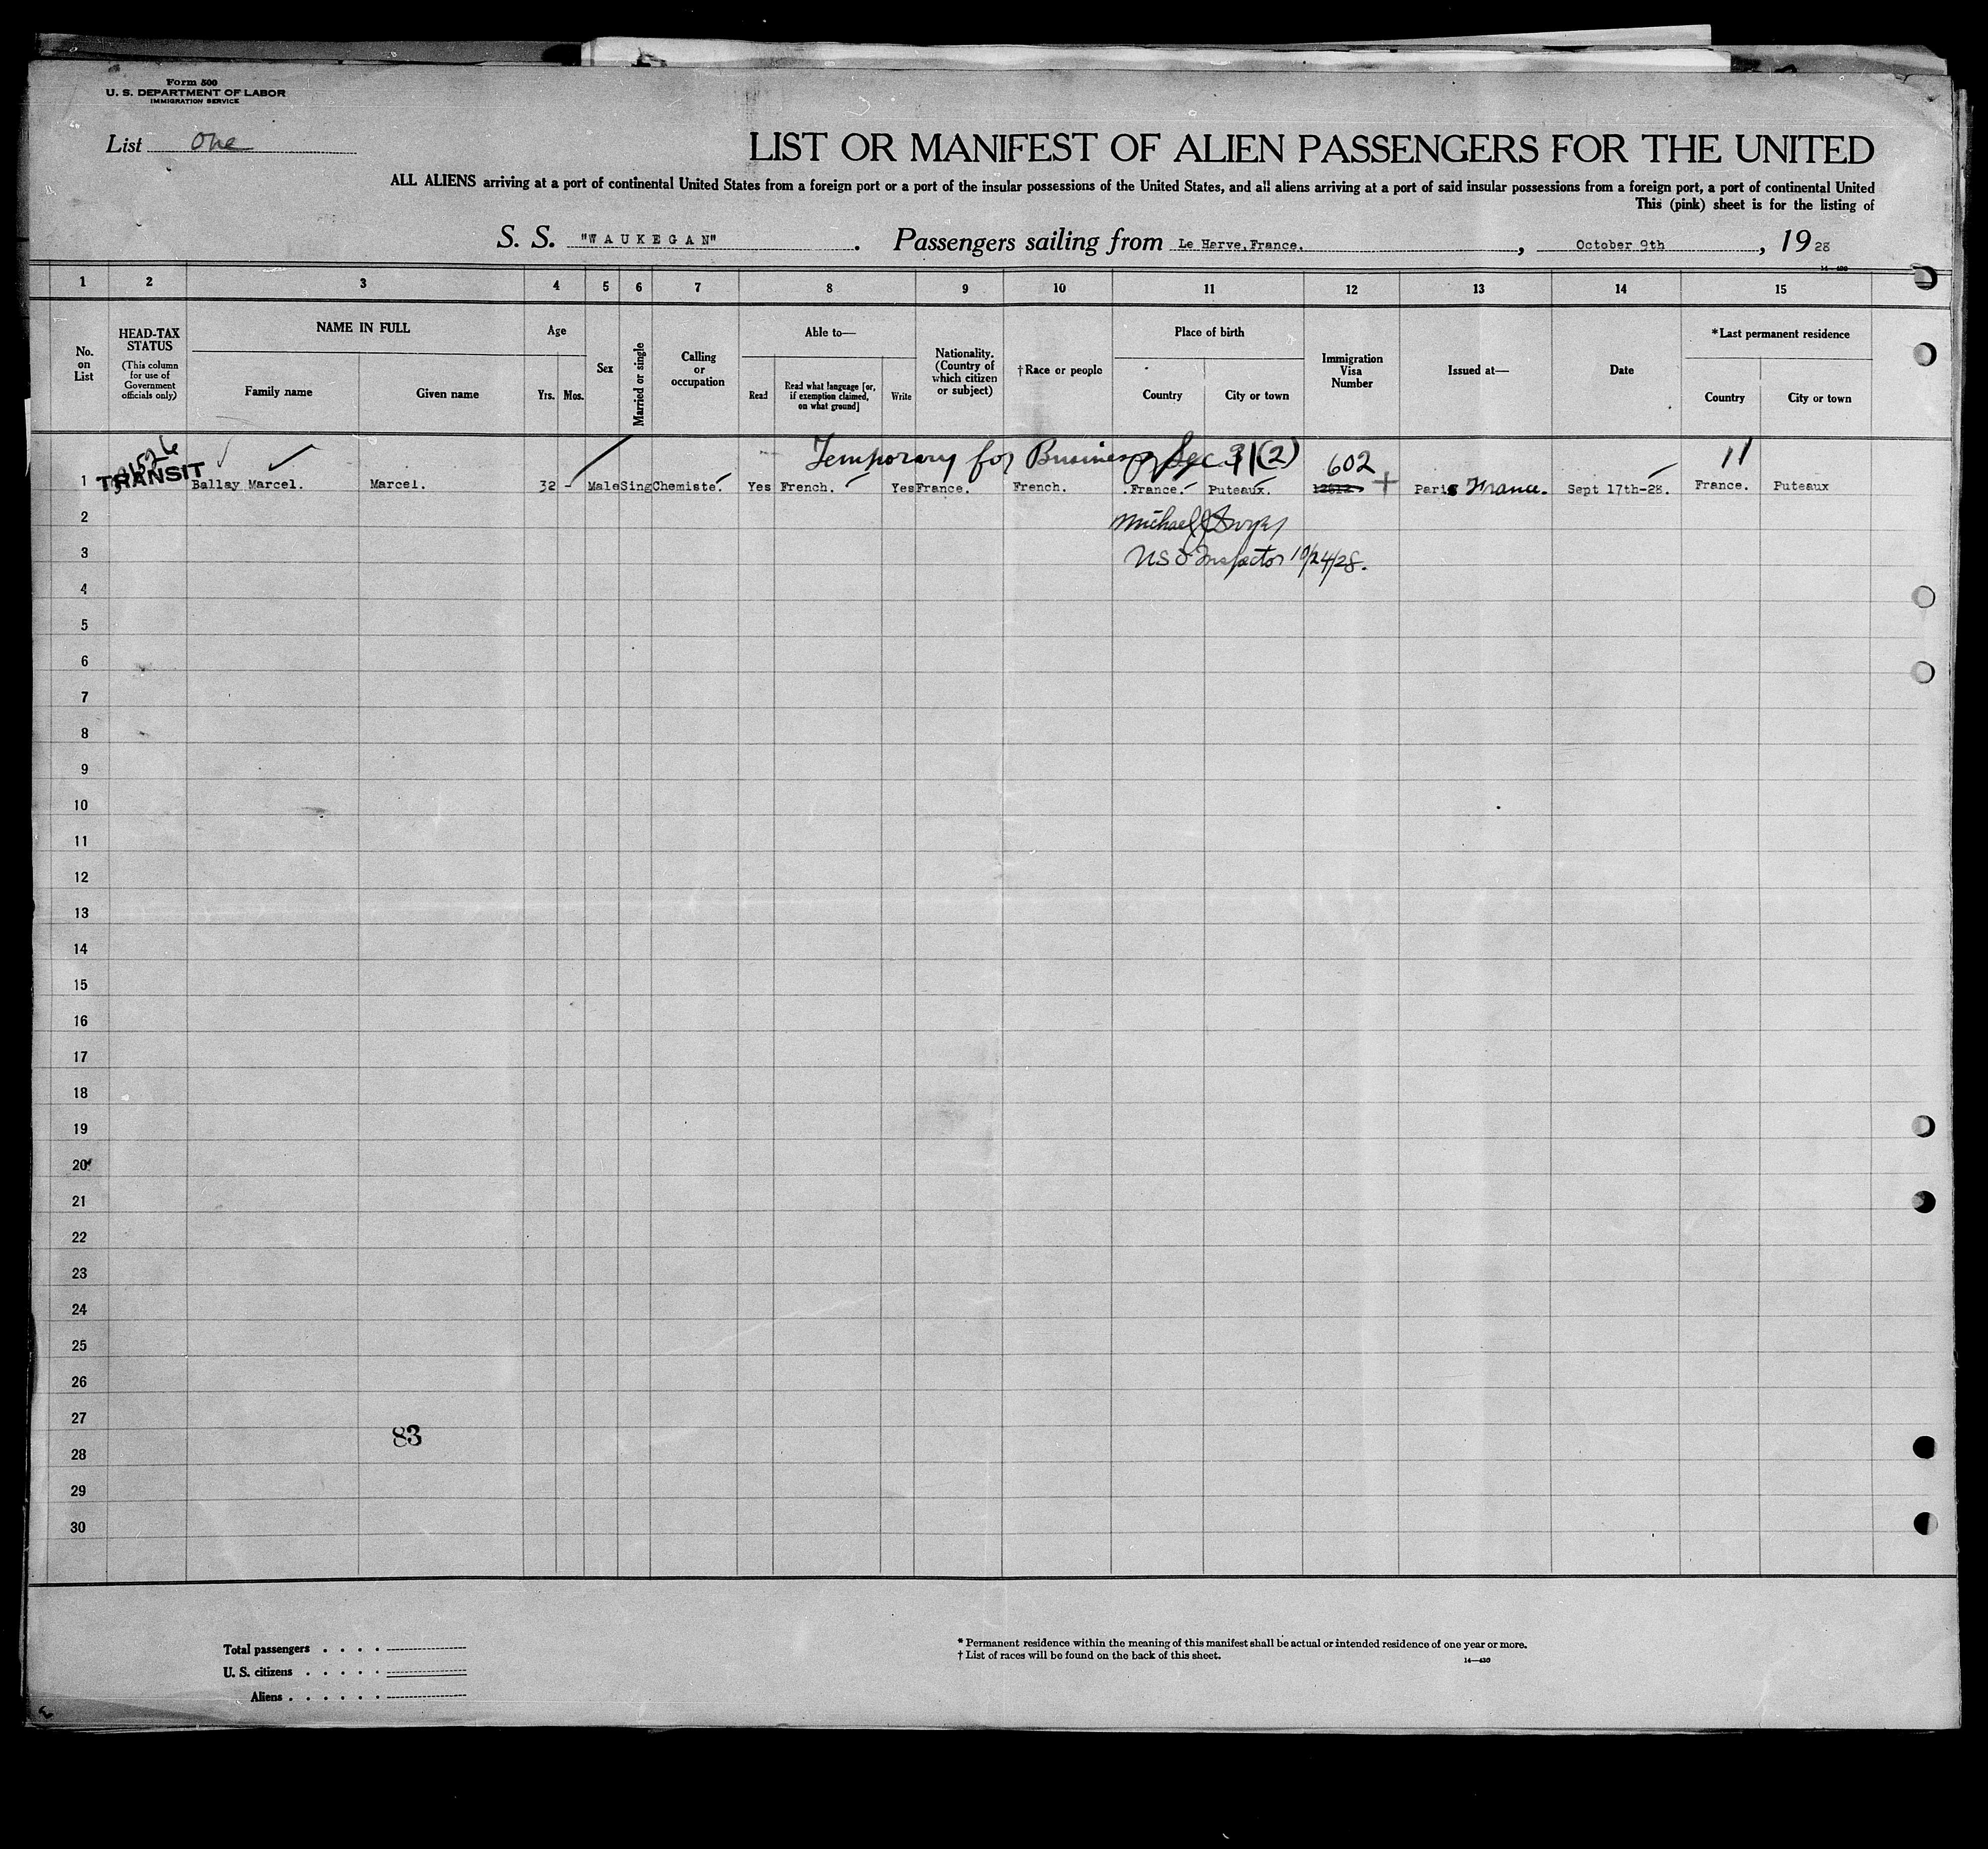 Form 500
U. S. DEPARTMENT OF LABOR
IMMIGRATION SERVICE
List One
LIST OR MANIFEST OF ALIEN PASSENGERS FOR THE UNITED
ALL ALIENS arriving at a port of continental United States from a foreign port or a port of the insular possessions of the United States, and all aliens arriving at a port of said insular possessions from a foreign port, a port of continental United
This (pink) sheet is for the listing of
S. S. "WAUKEGAN". Passengers sailing from Le Harve.France., October 9th, 1928
14—430
1 2 3 4 5 6 7 8 9 10 11 12 13 14 15
No. on List
HEAD-TAX STATUS
(This column for use of Government officials only)
NAME IN FULL
Family name
Given name
Age
Yrs. Mos.
Sex
Married or single
Calling or occupation
Able to—
Read
Read what language [or, if exemption claimed, on what ground]
Write
Nationality. (Country of which citizen or subject)
†Race or people
Place of birth
Country
City or town
Immigration Visa Number
Issued at—
Date
*Last permanent residence
Country
City or town
Temporary for Business Sec. 3(2)
602
11
1 TRANSIT Ballay Marcel. Marcel. 32 - Male Sing Chemiste. Yes French. Yes France. French. .France. Puteaux. Paris France. Sept 17th-28. France. Puteaux
2 Michael J Dwyer
3 US Inspector 10/24/28.
4
5
6
7
8
9
10
11
12
13
14
15
16
17
18
19
20
21
22
23
24
25
26
27
83
28
29
30
Total passengers . . . .
U. S. citizens . . . . .
Aliens . . . . . .
* Permanent residence within the meaning of this manifest shall be actual or intended residence of one year or more.
† List of races will be found on the back of this sheet.
14—430